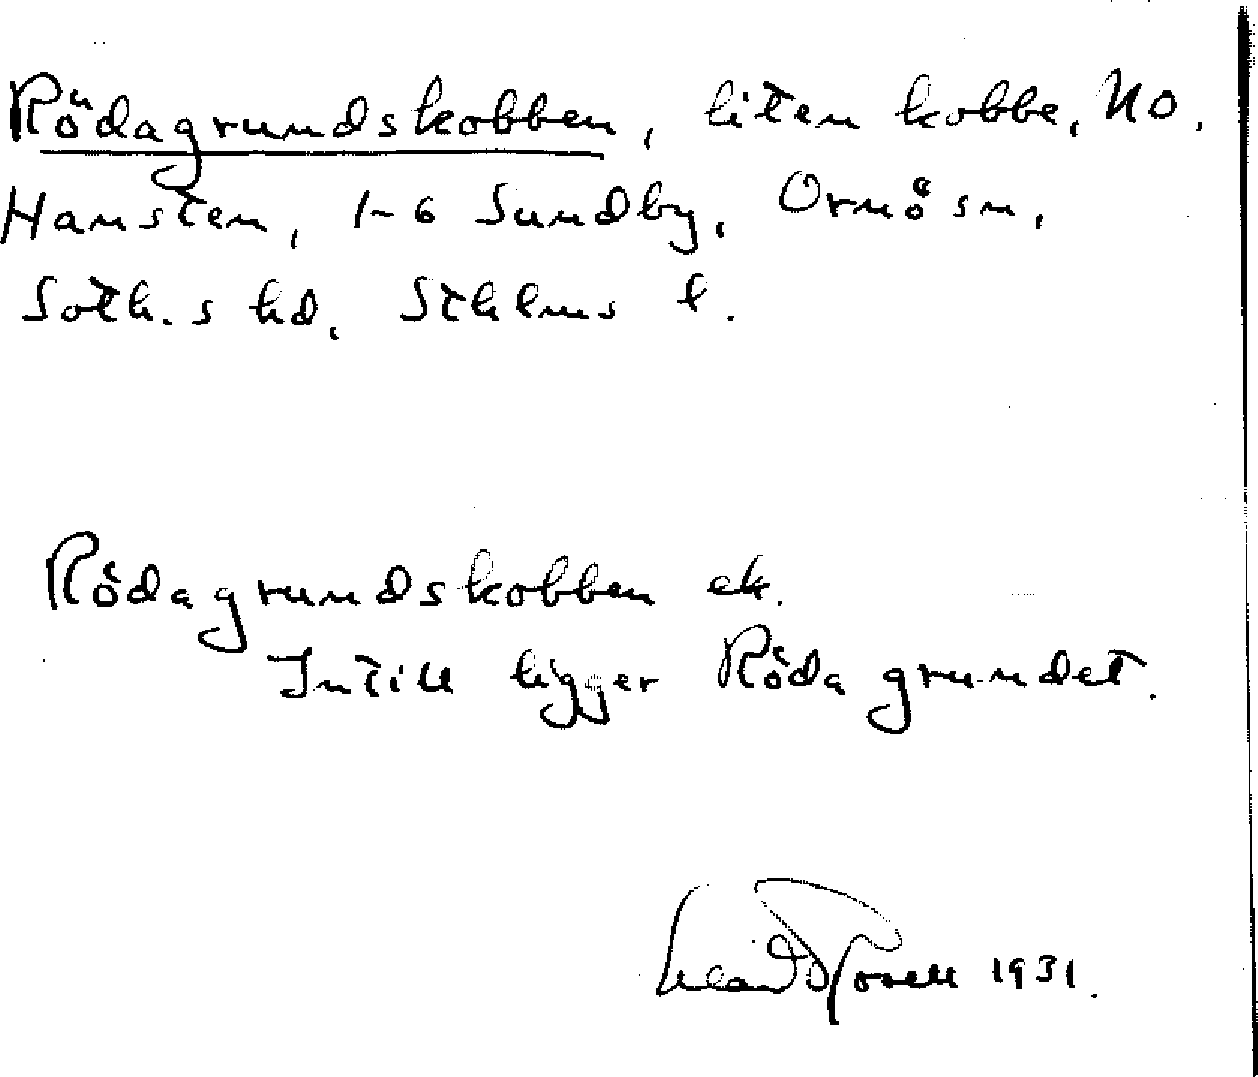 Rödagrundskobben, liten kobbe, NO.
Hansten, 1-6 Sundby, Ornö sn,
Soth.s hd, Sthlms l.
Rödagrundskobben ek.
Intill ligger Röda grundet.
1931.